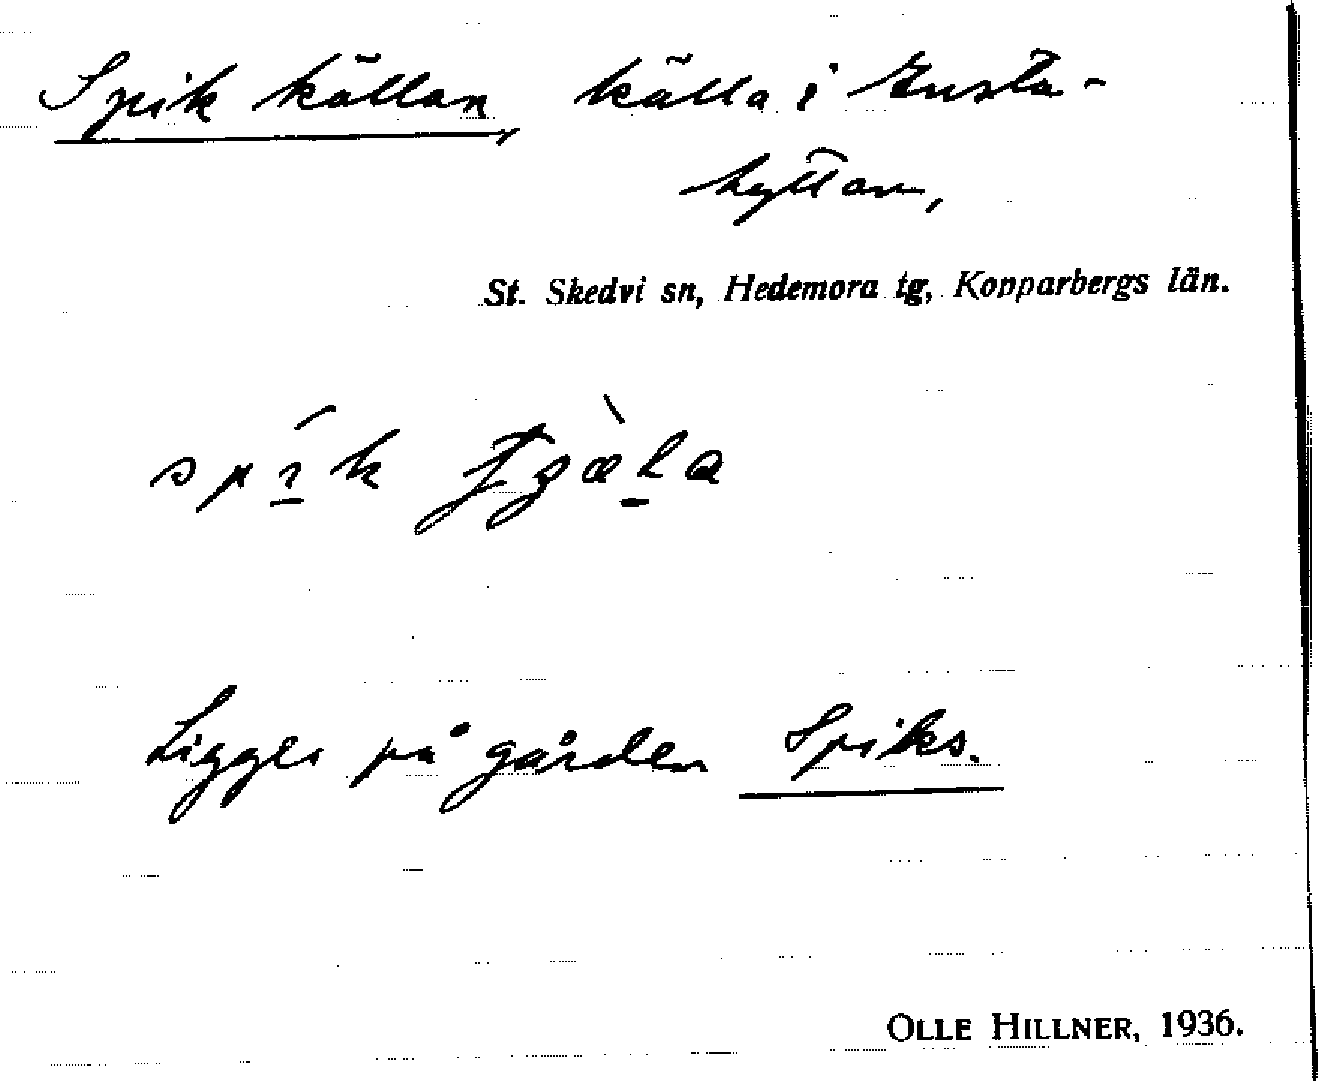 Spik källan, källa i Ensta-
hyttan,
St. Skedvi sn, Hedemora tg, Kopparbergs län.
Ligger på gården Spiks.
OLLE HILLNER, 1936.